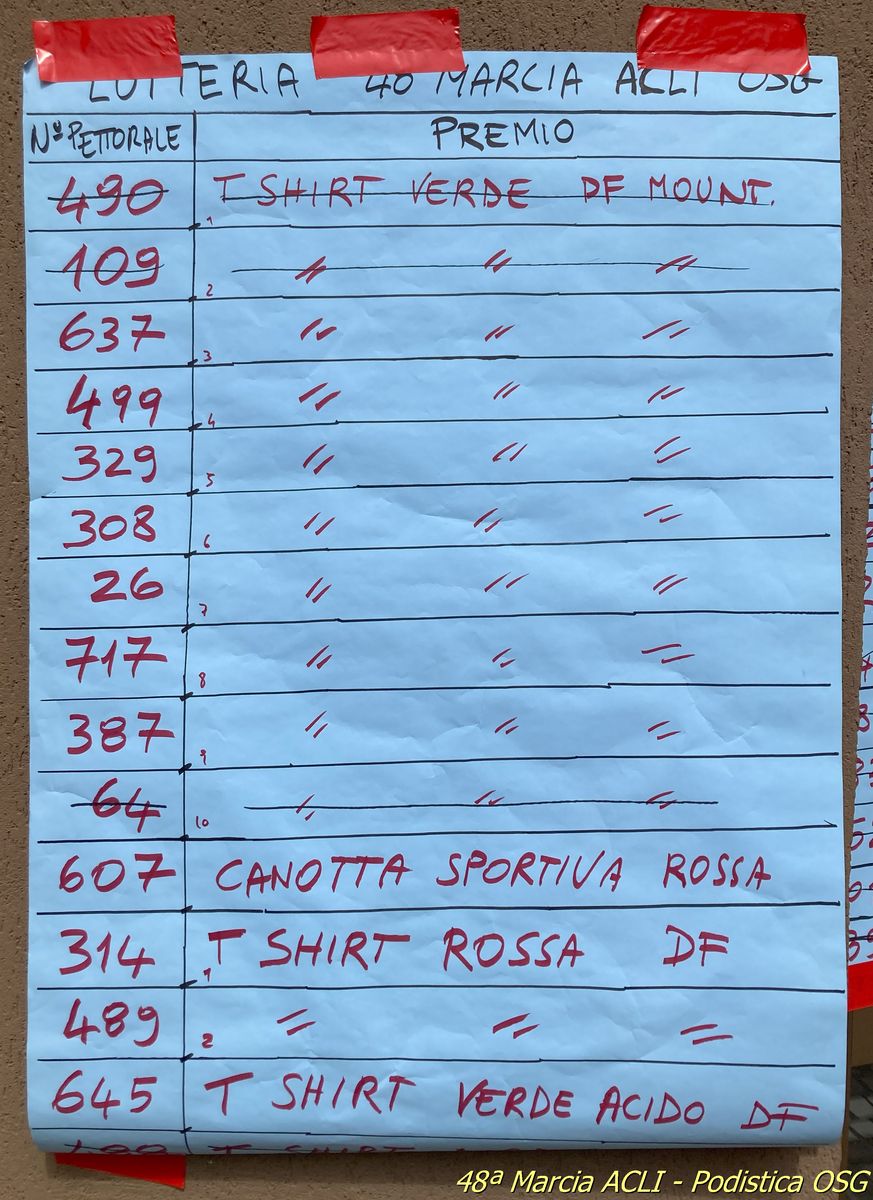 LOTTERIA 48 MARCIA ACLI OSG
N° PETTORALE PREMIO
490 1 T SHIRT VERDE DF MOUNT.
109 2 〃 〃 〃
637 3 〃 〃 〃
499 4 〃 〃 〃
329 5 〃 〃 〃
308 6 〃 〃 〃
26 7 〃 〃 〃
717 8 〃 〃 〃
387 9 〃 〃 〃
64 10 〃 〃 〃
607 CANOTTA SPORTIVA ROSSA
314 1 T SHIRT ROSSA DF
489 2 〃 〃 〃
645 T SHIRT VERDE ACIDO DF
T SHIRT
48ª Marcia ACLI - Podistica OSG